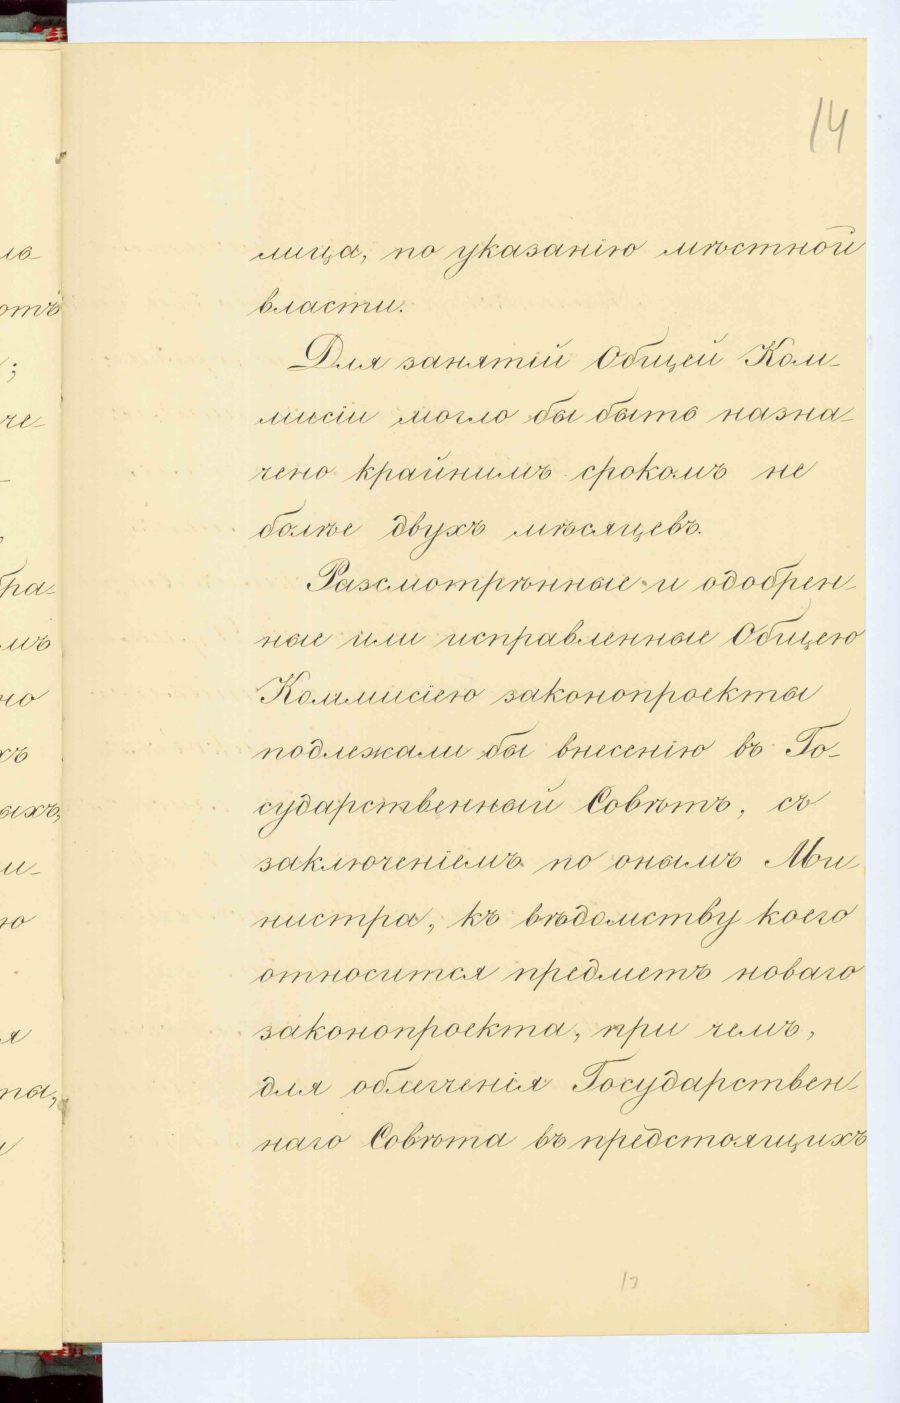 14
лица, по указанію мѣстной
власти.
Для занятій Общей Ком-
мисіи могло бы быть назна-
чено крайнимъ срокомъ не
болѣе двухъ мѣсяцевъ.
Разсмотрѣнные и одобрен-
ные или исправленные Общею
Коммисіею законопроекты
подлежали бы внесенію въ Го-
сударственный Совѣтъ, съ
заключеніемъ по онымъ Ми-
нистра, къ вѣдомству коего
относится предметъ новаго
законопроекта, при чемъ,
для облегченія Государствен-
наго Совѣта въ предстоящихъ